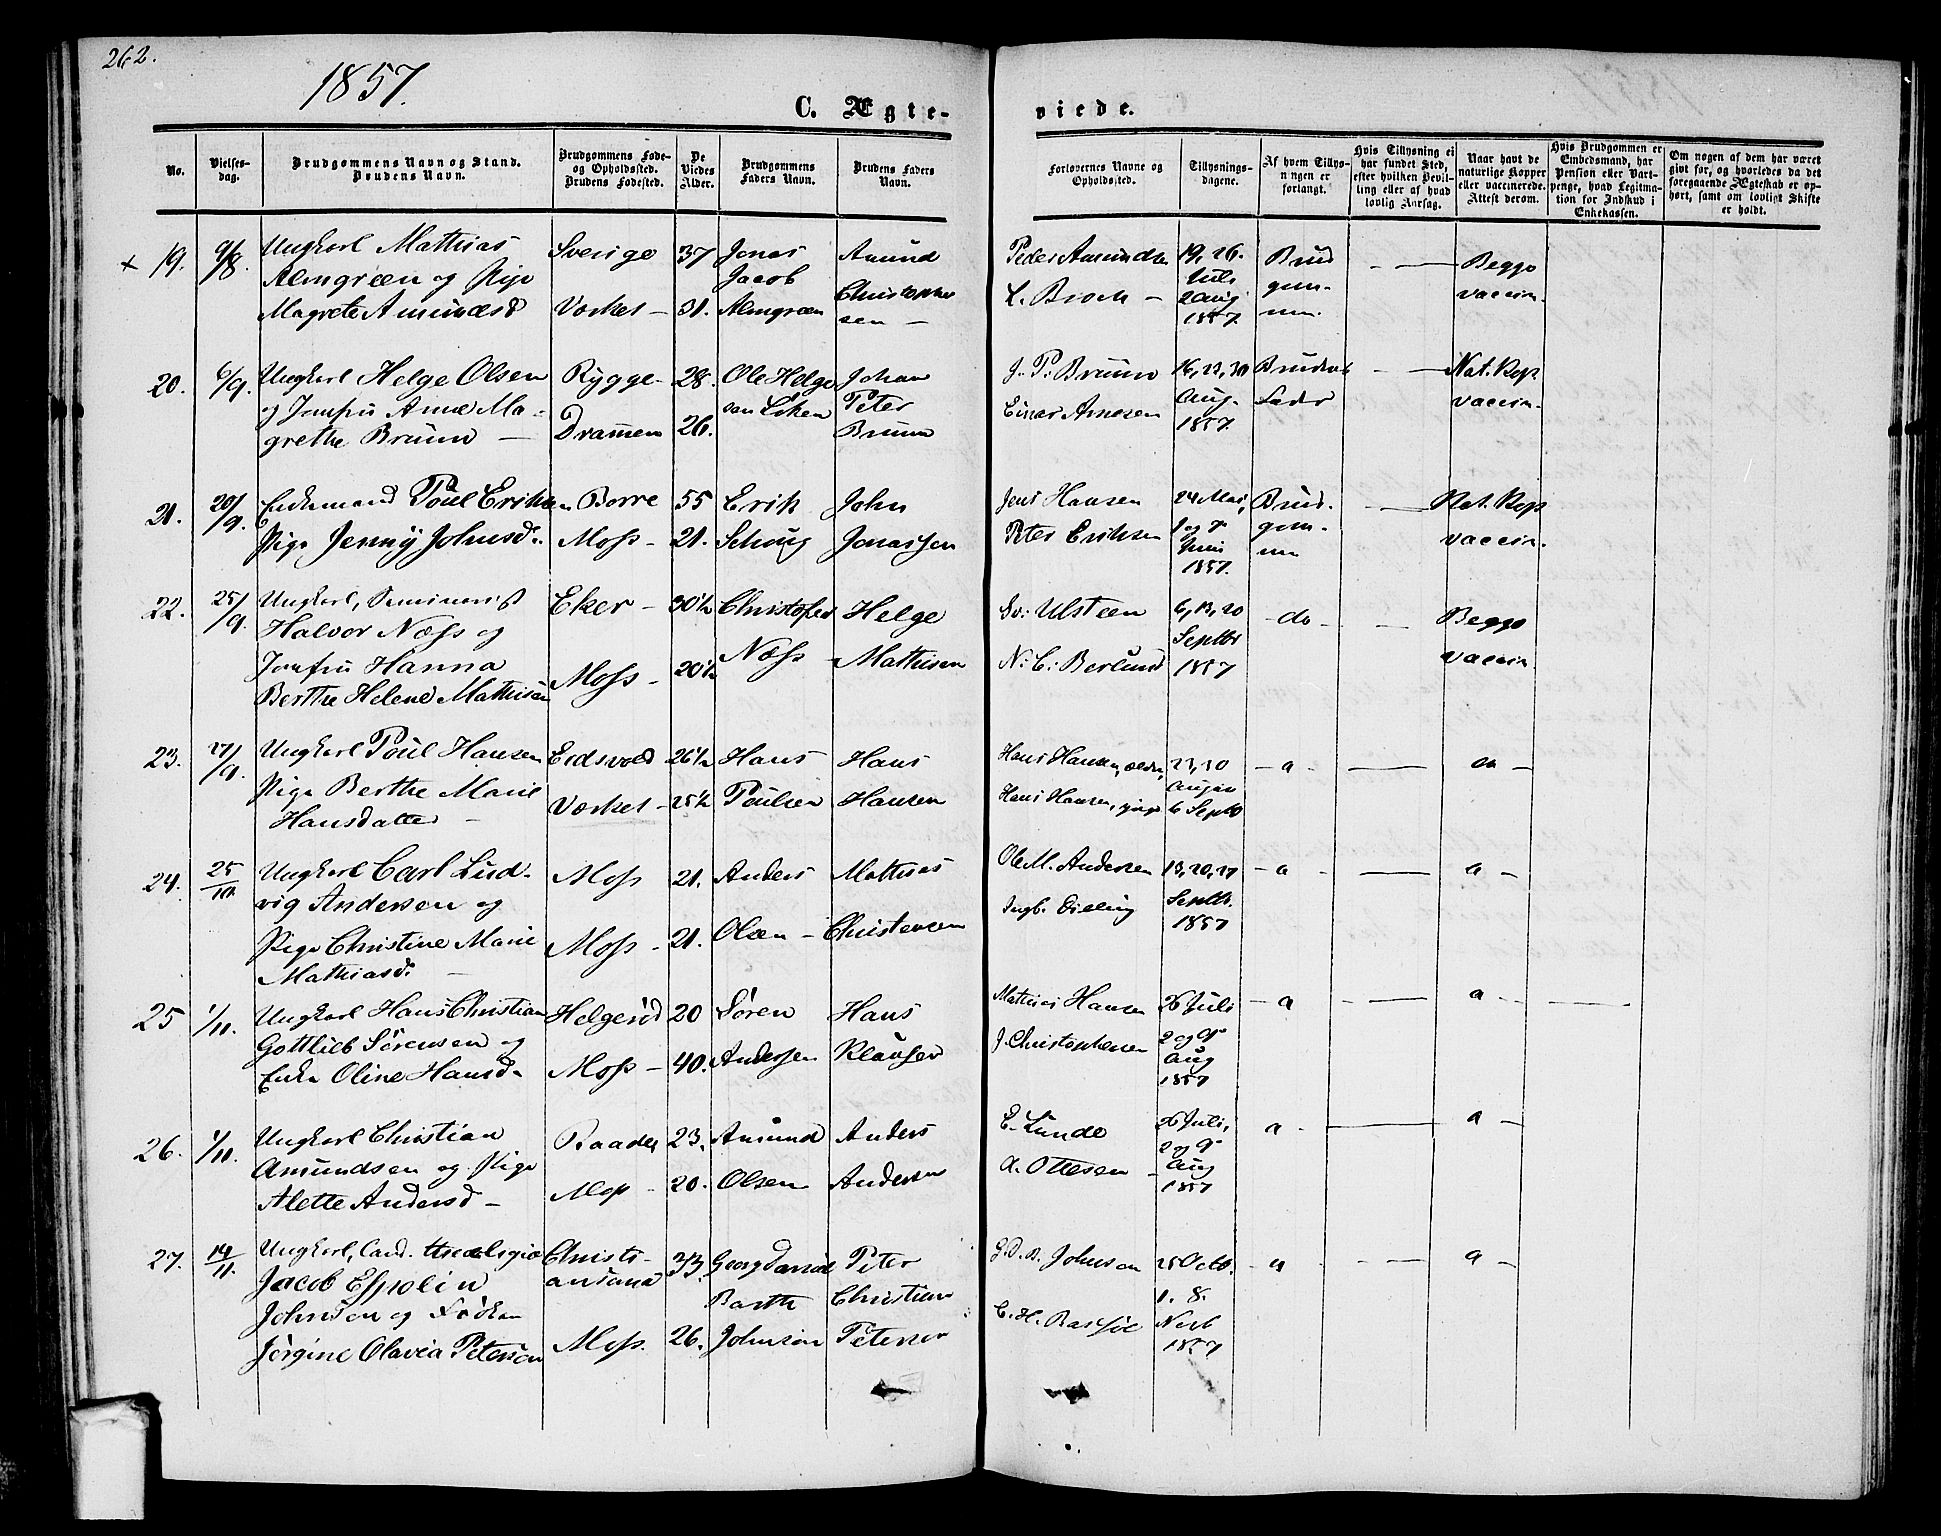 262.
1857.
C. Ægte-
viede.
No.
Vielses-
dag.
Brudgommens Navn og Stand.
Brudens Navn.
Brudgommens Føde-
og Opholdssted.
Brudens Fødested.
De
Viedes
Alder.
Brudgommens
Faders Navn.
Brudens Faders
Navn.
Forlovernes Navne og
Opholdssted.
Tillysnings-
dagene.
Af hvem Tillys-
ningen er
forlangt.
Hvis Tillysning ei
har fundet Sted,
efter hvilken Bevil-
ling eller af hvad
lovlig Aarsag.
Naar havt de
naturlige Kopper
eller vaccinerede.
Attest derom.
Hvis Brudgommen er
Embedsmand, har
Pension eller Vart-
penge, hvad Legitima-
tion for Indskud i
Enkekassen.
Om nogen af dem har været
gift før, og hvorledes da det
foregaaende Ægteskab er op-
hørt, samt om lovligt Skifte
er holdt.
x 19. 9/8. Ungkarl Mathias Sverige 37 Jonas Amund Peder Amundsen 19, 26. Brud Begge
Almgreen og Pige Jacob Christopher Juli gom- vaccin.
Magrete Amundsd Værket - 31. Almgreen sen - L. Broch - 2 Aug men.
1857.
20. 6/9. Ungkarl Helge Olsen Rygge- 28. Ole Helge Johan J. P. Bruun 16, 23, 30 Brudens Nat. Kop
og Jomfru Anne Ma- sen Peter Einar Arnesen Aug. Fader vaccin.
grethe Bruun - Drammen 26. Bruun 1857.
21. 20/9. Enkemand Poul Eriksen Borre 55 Erik John Jens Hansen 24 Mai, Brud- Nat. Kop
Pige Jenny Johnsd. Moss - 21. Schoug Jonassen Peter Eriksen 1 og 7 gom- vaccin.
Juni men
1857.
22. 25/9. Ungkarl, Seminarist Eker - 30½ Christofer Helge Sv: Ulsteen 6, 13, 20 - do - Begge
Halvor Næss og Næss - Mathisen Septbr vaccin
Jomfru Hanna Moss - 20½ N: C: Berlund 1857
Berthe Helene Mathisen
23. 27/9. Ungkarl Poul Hansen Eidsvold 26½ Hans Hans Hans Hansen, ældre, 23, 30 - a - a -
Pige Berthe Marie Værket - 25½ Poulsen Hansen Hans Hansen, yngre 6 Septb
Hansdatter -
24. 25/10. Ungkarl Carl Lud- Moss 21. Anders Mathias Ole M. Andersen 13, 20, 27 - a - a -
vig Andersen og Septb.
Pige Christine Marie Moss - 21. Olsen - Christensen Ingb. 1857
Mathiasd. -
25 1/11. Ungkarl Hans Christian Helgerød 20 Sören Hans Mathias Hansen 26 Juli - a - a -
Gottlieb Sörensen og 2 og 9
Enke Oline Hansd. Moss - 40. Andersen Klausen J. Christophersen Aug
1857
26. 1/11. Ungkarl Christian Raade 23. Amund Anders E. Lunde 26 Juli, a - a -
Amundsen og Pige 2 og 9
Alette Andersd - Moss - 20. Olsen Andersen A. Ottesen - Aug
1857
27. 14/11. Ungkarl, Cand. theologiæ Christi- 33. Georg Daniel Peter G. D. B. Johnson 25 Octb. - a - a -
Jacob Espolin ansand Barth Christian 1. 8.
Johnson og Frøken C. H. Novb
Jørgine Olavia Petersen Moss. 26. Johnson Petersen 1857